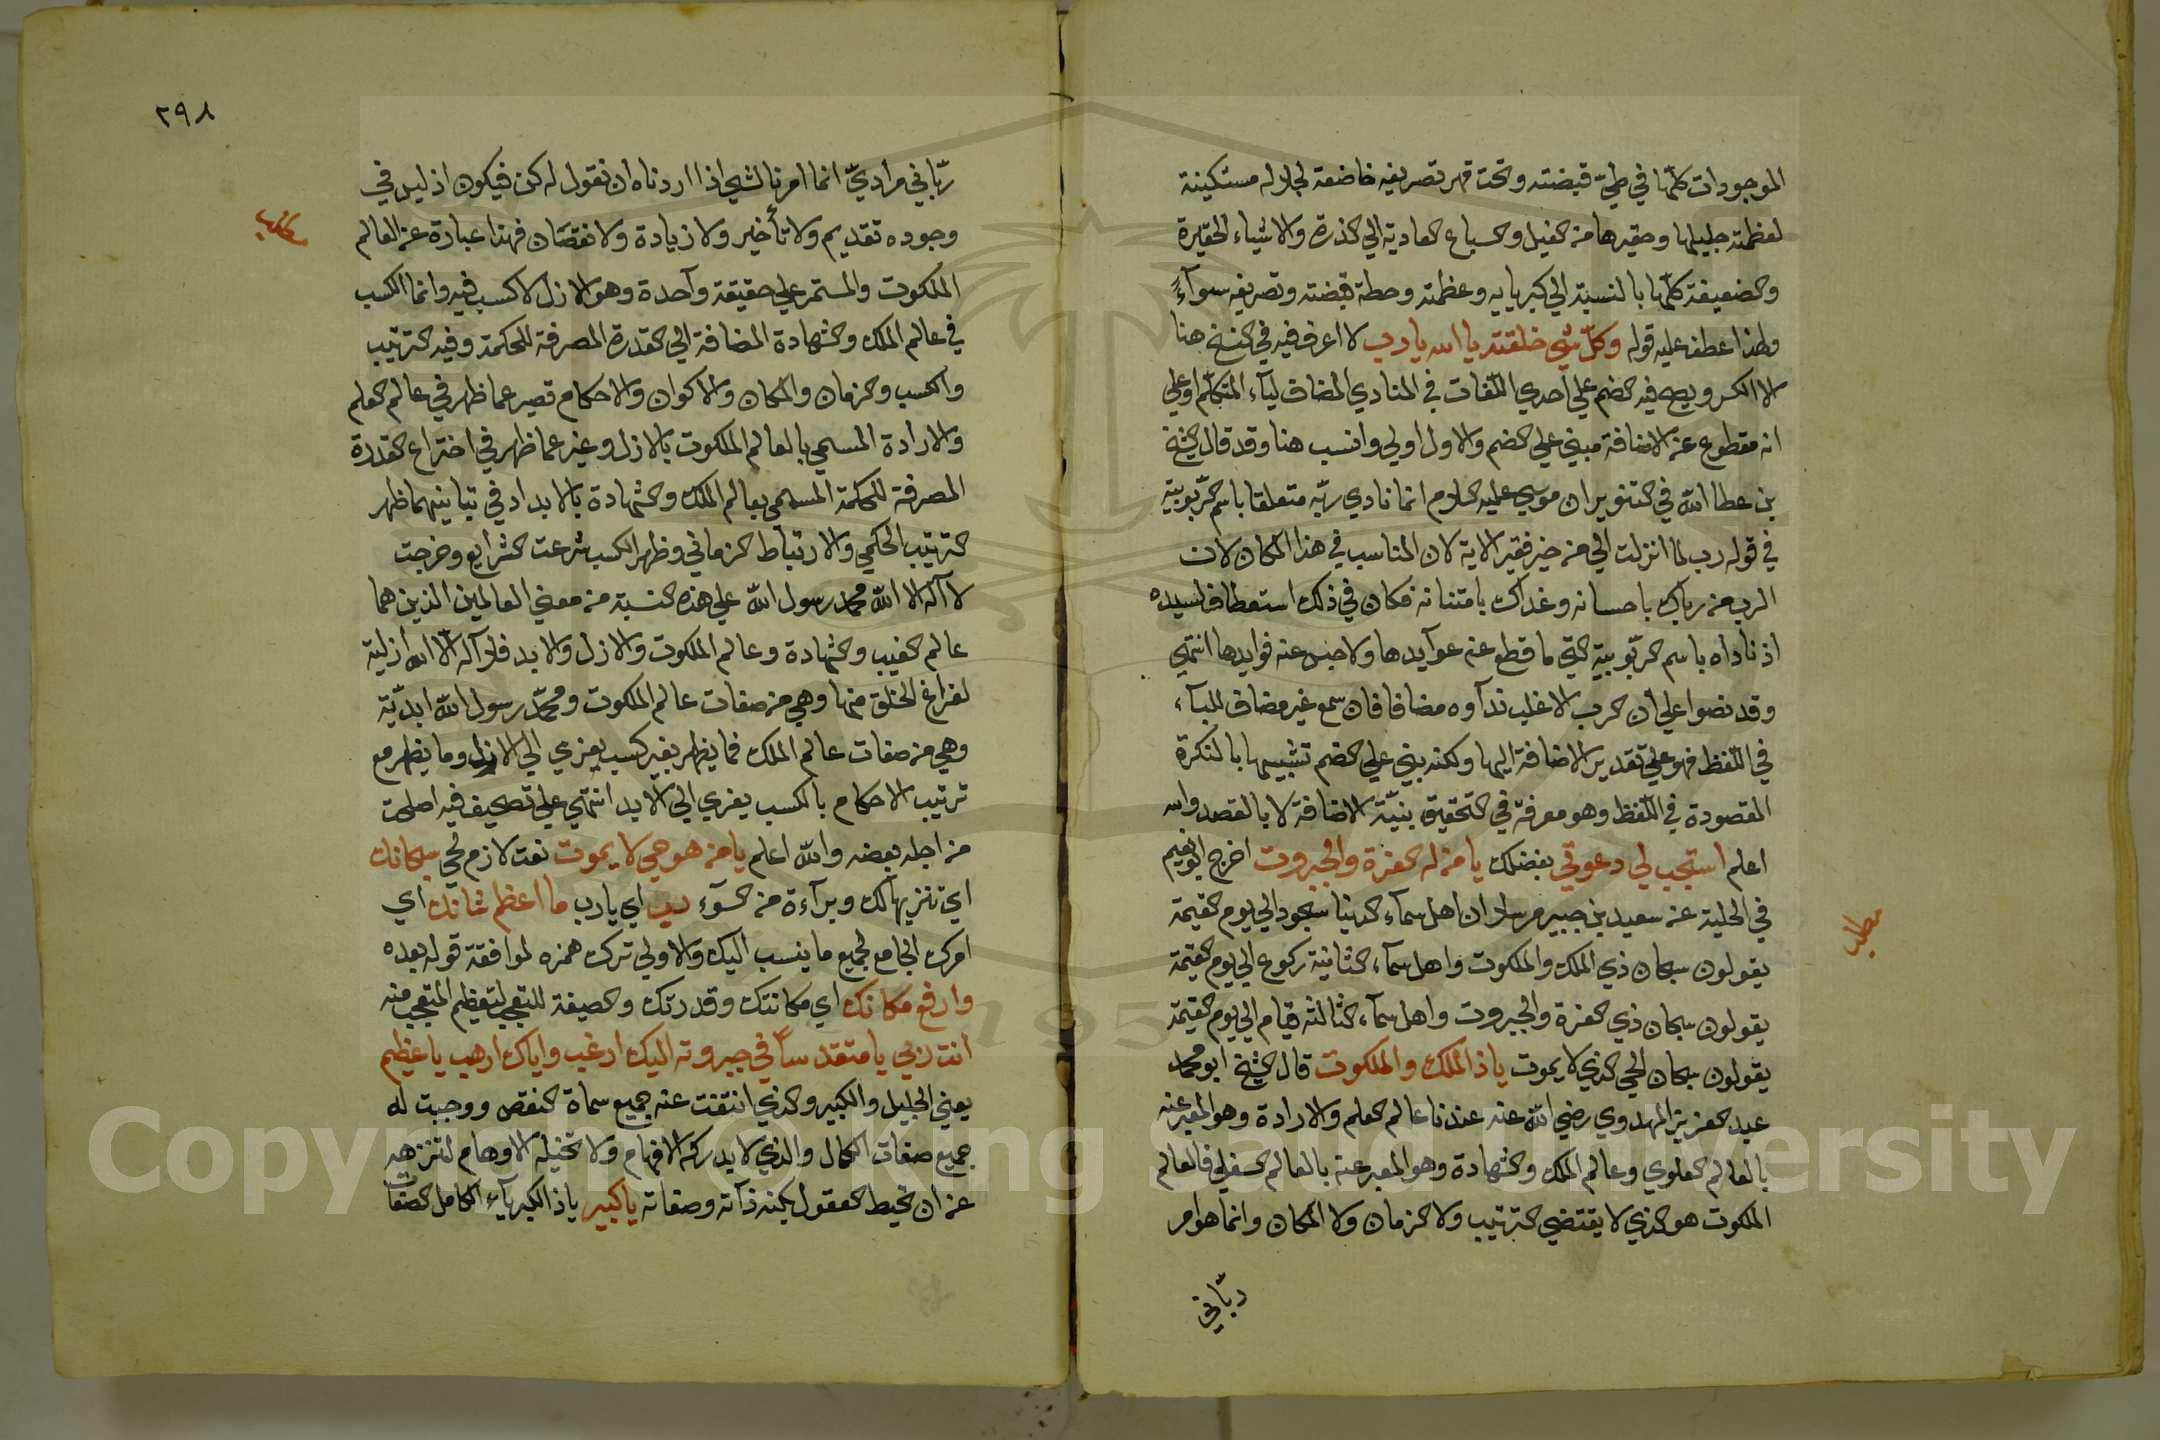 الموجودات كلّها في طيّ قبضته وتحت قهر تصريفه خاضعة لجلاله مستكينة
لعظمته جليلها وحقيرها من الفيل والسباع العادية الي الذرة والاشياء الحقيرة
والضعيفة كلّها بالنسبة الي كبريايه وعظمته وحطة قبضته وتصريفه سوآءً
ولهذا عطف عليه قوله وكلّ شئ خلقته يا الله يا رب لا اعرف فيه في النسخ هنا
الا الكسر ويصح فيه الضم علي احدي اللّغات في المنادي المضاف ليآء المتكلّم او علي
انه مقطوع عن الاضافة مبني علي الضم والاول اولي وانسب هنا وقد قال الشيخ
بن عطا اللّه في التنوير ان موسي عليه السلام انما نادي ربّه متعلقا باسم الرّبوبية
في قوله رب لما انزلت الي من خير فقير الاية لان المناسب في هذا المكان لان
الرب من رباك باحسانه وغداك بامتنانه فكان في ذلك استعطاف لسيده
اذ ناداه باسم الربّوبية التي ما قطع عنه عوآيدها ولا حبس عنه فوايدها انتهي
وقد نصوا علي أن الرب الاغلب ندآوه مضافا فان سمع غير مضاف للياء
في اللّفظ فهو علي تقدير الاضافة اليها ولكنه بني علي الضم تشبيها بالنكرة
المقصودة في اللّفظ وهو معرفة في التحقيق بنيّة الاضافة لا بالقصد والله
اعلم استجب لي دعوتي بفضلك يا من له العزة والجبروت اخرج ابو نعيم
في الحلية عن سعيد بن جبير مرسلا ان اهل سمآء الدنيا سجود الي يوم القيمة
يقولون سبحان ذي الملك والملكوت واهل سمآء الثانية ركوع الي يوم القيمة
يقولون سبحان ذي العزة والجبروت واهل سمآء الثالثة قيام الي يوم القيمة
يقولون سبحان الحي الذي لا يموت يا ذا الملك والملكوت قال الشيخ ابو محمد
عبد العزيز المهدوي رضي اللّه عنه عندنا عالم العلم والارادة وهو المعبر عنه
بالعالم العلوي وعالم الملك والشهادة وهو المعبر عنه بالعالم السفلي فالعالم
الملكوت هو الذي لا يقتضي الترتيب ولا الزمان ولا المكان وانما هو امر
ربّاني
مطلب
٢٩٨
ربّاني مراديّ انما امرنا لشي اذا اردناه ان نقول له كن فيكون اذ ليس في
وجوده تقديم ولا تأخير ولا زيادة ولا نقصان فهذا عبارة عن العالم
الملكوت والمستمر علي حقيقة وآحدة وهو الازل لا كسب فيه وانما الكسب
في عالم الملك والشهادة المضافة الي القدرة المصرفة للحكمة وفيه الترتيب
والكسب والزمان والمكان والاكوان والاحكام قصير عما ظهر في عالم العلم
والارادة المسمي بالعالم الملكوت بالازل وغير عما ظهر في اختراع القدرة
المصرفة للحكمة المسمي بعالم الملك والشهادة بالابداد في تباينهما ظهر
الترتيب الحكمي والارتباط الزماني وظهر الكسب شرعت الشرايع وخرجت
لا آله الا اللّه محمد رسول اللّه علي هذه النسبة من معني العالمين الذين هما
عالم الغيب والشهادة وعالم الملكوت والازل والابد فلا آله الّا الله ازلية
لفراغ الخلق منها وهي من صفات عالم الملكوت ومحمّد رسول اللّه ابديّة
وهي من صفات عالم الملك فما يظهر بغير كسب يعزي الي الازل وما يظهر مع
ترتيب الاحكام بالكسب يعزي الي الابد انتهي علي تصحيف فيه اصلحت
من اجله بعضه واللّه اعلم يا من هو حي لا يموت نعت لازم لحي سبحانك
اي تنزيها لك وبرآءة من السوٓء رب اي يا رب ما اعظم شانك اي
امرك الجامع لجميع ما ينسب اليك والاولي ترك همزه لموافقة قوله بعده
وارفع مكانك اي مكانتك وقدرتك والصيغة للتعجب لتعظيم المتعجب منه
انت ربي يا متقدساً في جبروته اليك ارغب واياك ارهب يا عظيم
يعني الجليل والكبير والذي انتفت عنه جميع سماة النقص ووجبت له
جميع صفات الكمال والذي لا يدركه الافهام ولا تخيله الاوهام لتنزهه
عن ان تحيط العقول بكنه ذآته وصفاته يا كبير يا ذا الكبريآء الكامل الصفات
Copyright © King Saud University
1957